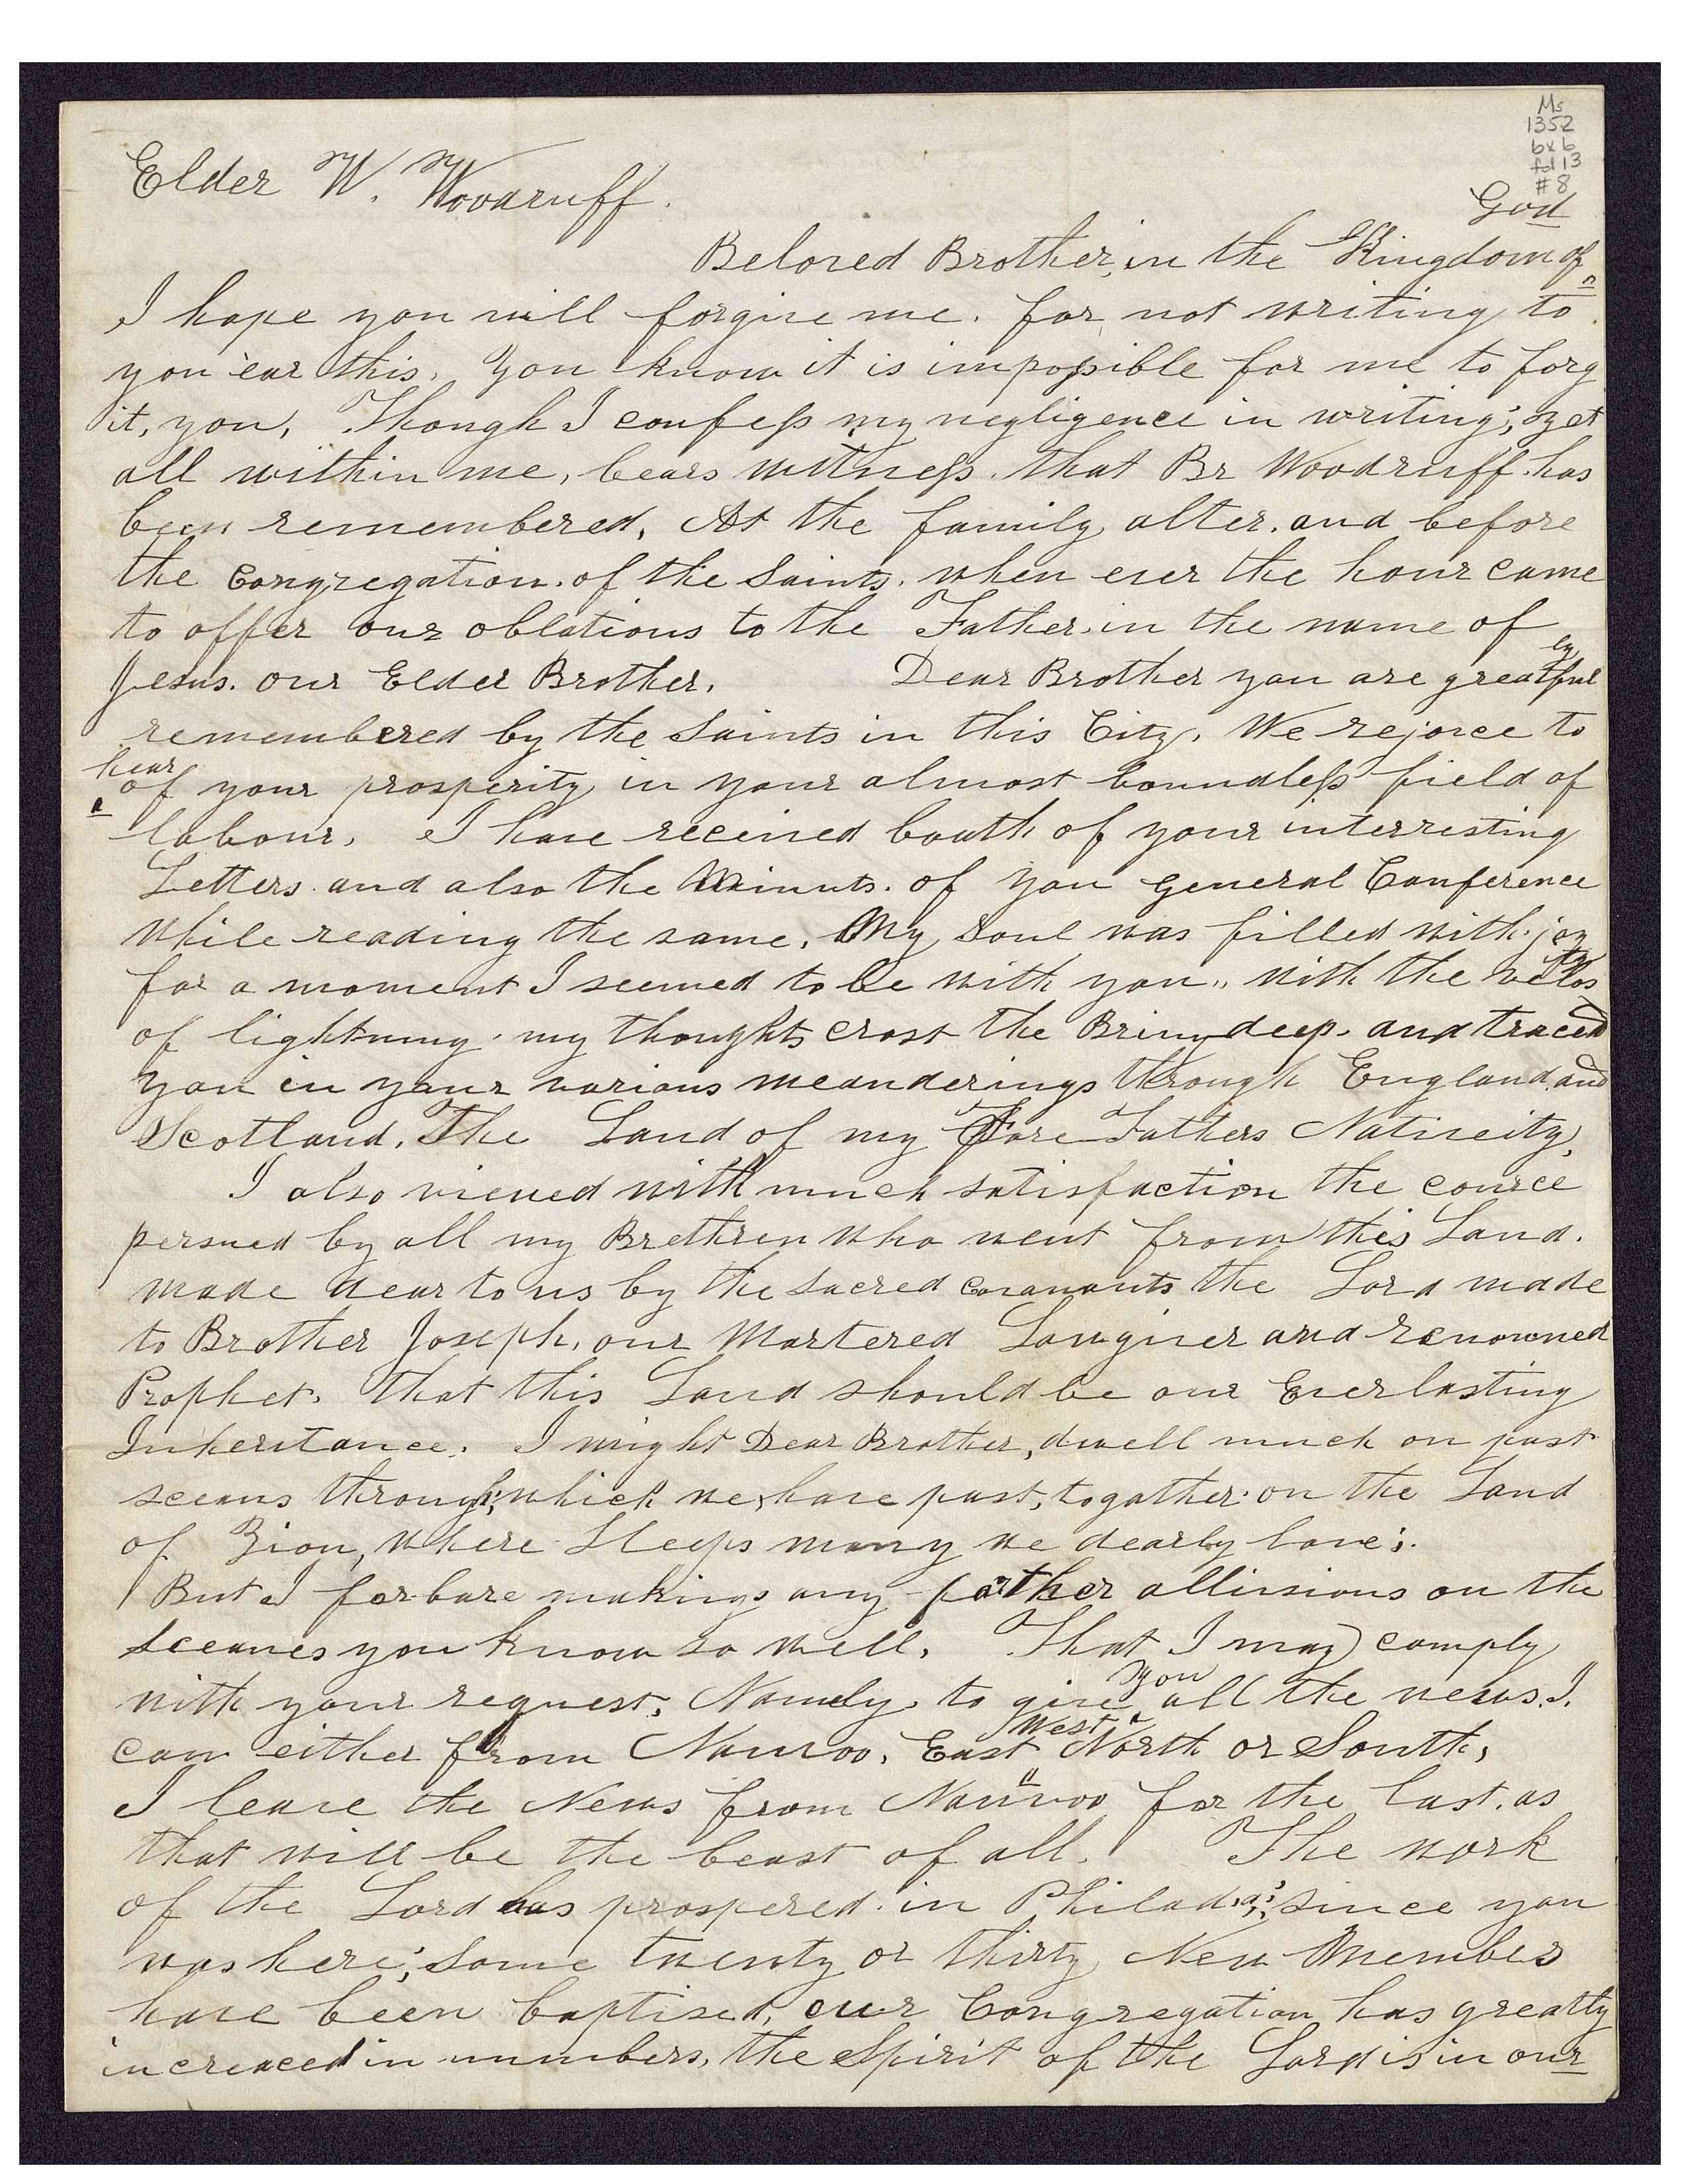 Ms
1352
bx 6
fd 13
#8
Elder W. Woodruff.
God
Beloved Brother, in the Kingdom of
I hope you will forgive me. for not writing to
you 'ear this. You know it is impossible for me to forg
it, you, Though I confess my negligence in writing; yet
all within me, bears witness. that Br Woodruff. has
been remembered, At the family alter. and before
the Congregation. of the Saints. when ever the hour came
to offer our oblations to the Father. in the name of
Jesus. our Elder Brother. Dear Brother you are greatful
ly
remembered by the Saints in this City. We rejoice to
hear
of your prosperity in your almost boundless field of
labour, I have received bouth of your interresting
Letters. and also the Minuts. of you General Conference
While reading the same. My Soul was filled with. joy
for a moment I seemed to be with you,, with the velos
ty
of lightning. my thoughts crost the Briny deep. and traced
you in your various meanderings through England, and
Scotland. The Land of my Fore Fathers Nativeity,
I also viewed with much satisfaction the cource
persued by all my Brethren who went from this Land.
made dear to us by the sacred covanants the Lord made
to Brother Joseph, our Martered Lawgiver and renowned
Prophet. that this Land should be our Everlasting
Inheritance. I might Dear Brother, dwell much on past
sceens through; which we have past, togather on the Land
of Zion, where Sleeps many we dearly love;.
But I forbare makings any farther allusions on the
sceanes you know so well. That I may comply
with your request, Namely. to give you all the news. I.
can either from Nauvoo, East West North or South,
I leave the News from Nauvoo for the last. as
that will be the beast of all. The work
of the Lord has prospered. in Philad,a,; since you
was here; Some twenty or thirty New Members
have been baptised, our Congregation has greatly
increaced in numbers, the Spirit of the Lord is in our